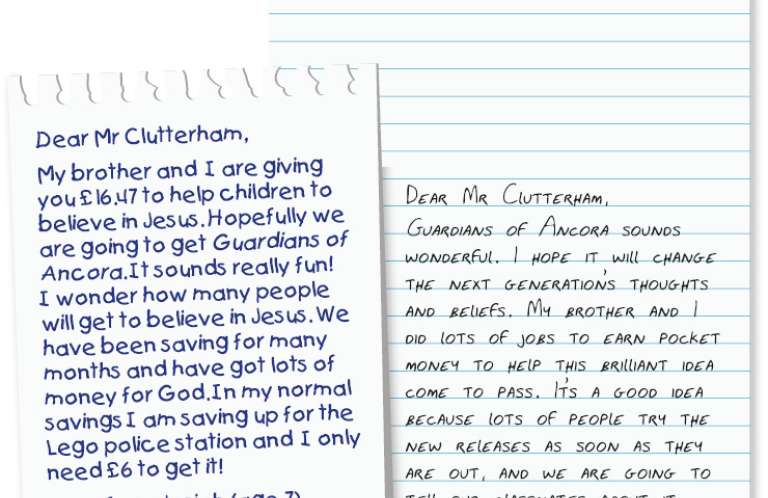 Dear Mr Clutterham,
My brother and I are giving
you £16.47 to help children to
believe in Jesus. Hopefully we
are going to get Guardians of
Ancora. It sounds really fun!
I wonder how many people
will get to believe in Jesus. We
have been saving for many
months and have got lots of
money for God. In my normal
savings I am saving up for the
Lego police station and I only
need £6 to get it!
DEAR MR CLUTTERHAM,
GUARDIANS OF ANCORA SOUNDS
WONDERFUL. I HOPE IT WILL CHANGE
THE NEXT GENERATION'S THOUGHTS
AND BELIEFS. MY BROTHER AND I
DID LOTS OF JOBS TO EARN POCKET
MONEY TO HELP THIS BRILLIANT IDEA
COME TO PASS. IT'S A GOOD IDEA
BECAUSE LOTS OF PEOPLE TRY THE
NEW RELEASES AS SOON AS THEY
ARE OUT, AND WE ARE GOING TO